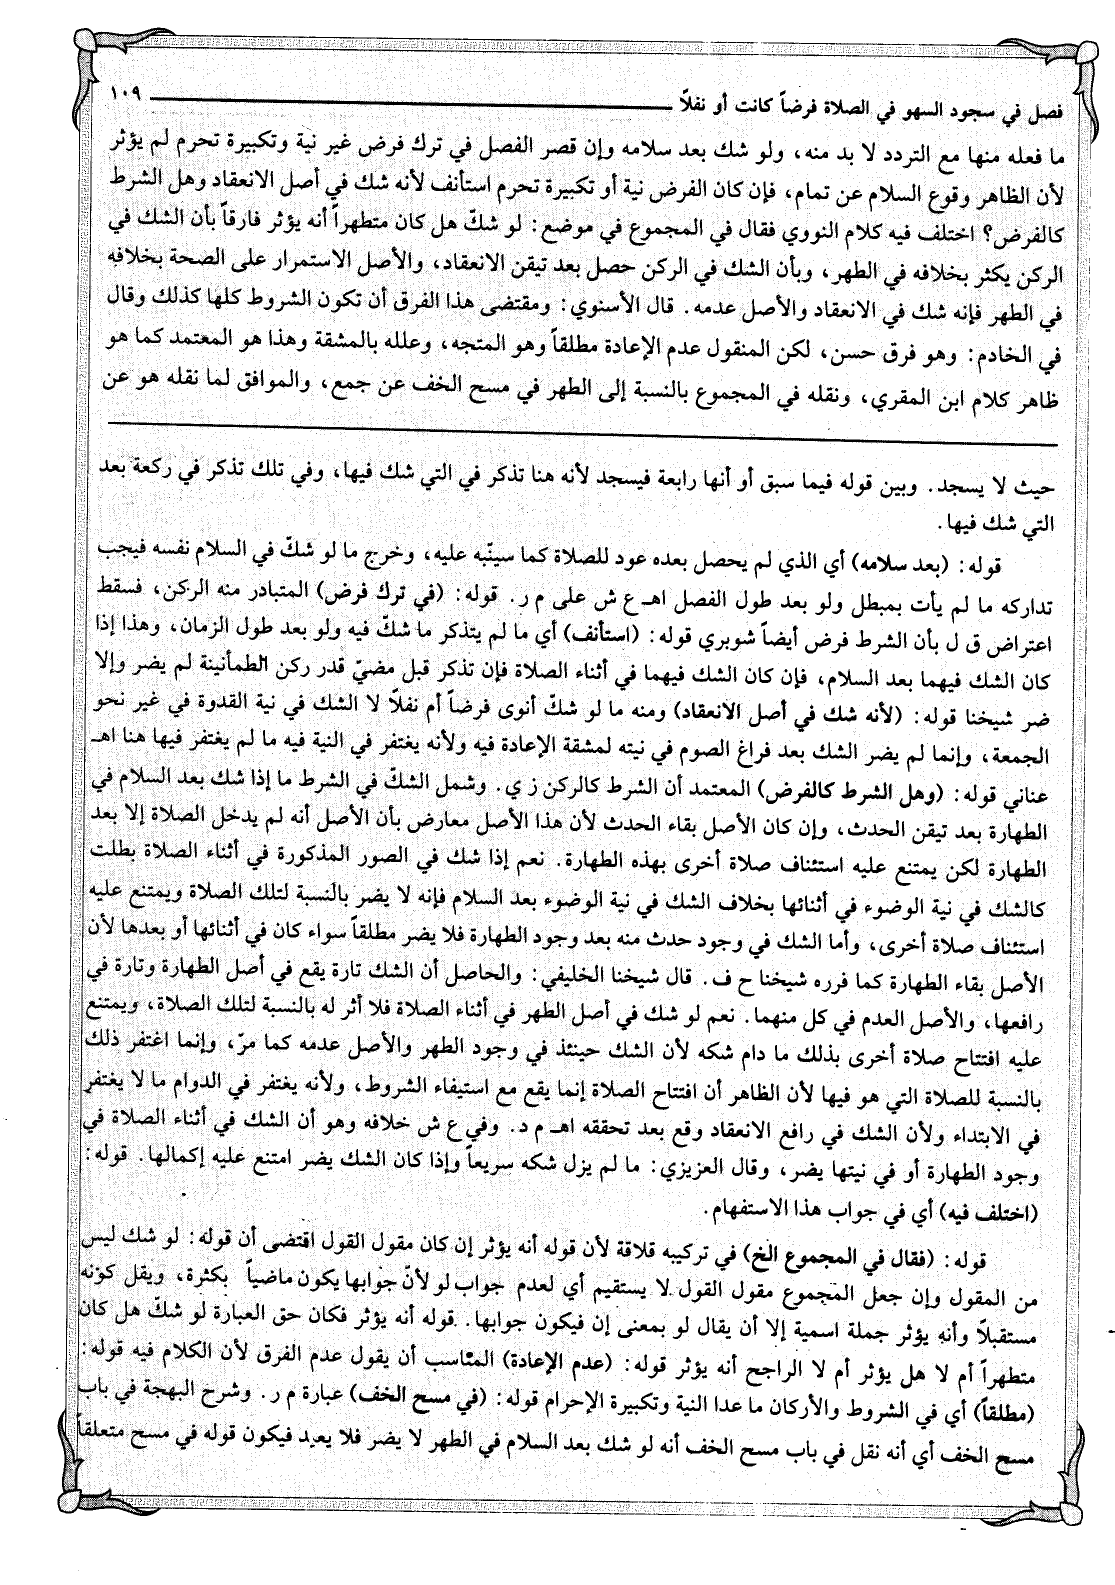 فصل في سجود السهو في الصلاة فرضاً كانت أو نفلاً ١٠٩
ما فعله منها مع التردد لا بد منه، ولو شك بعد سلامه وإن قصر الفصل في ترك فرض غير نية وتكبيرة تحرم لم يؤثر
لأن الظاهر وقوع السلام عن تمام، فإن كان الفرض نية أو تكبيرة تحرم استأنف لأنه شك في أصل الانعقاد وهل الشرط
كالفرض؟ اختلف فيه كلام النووي فقال في المجموع في موضع: لو شكّ هل كان متطهراً أنه يؤثر فارقاً بأن الشك في
الركن يكثر بخلافه في الطهر، وبأن الشك في الركن حصل بعد تيقن الانعقاد، والأصل الاستمرار على الصحة بخلافه
في الطهر فإنه شك في الانعقاد والأصل عدمه. قال الأسنوي: ومقتضى هذا الفرق أن تكون الشروط كلها كذلك وقال
في الخادم: وهو فرق حسن، لكن المنقول عدم الإعادة مطلقاً وهو المتجه، وعلله بالمشقة وهذا هو المعتمد كما هو
ظاهر كلام ابن المقري، ونقله في المجموع بالنسبة إلى الطهر في مسح الخف عن جمع، والموافق لما نقله هو عن
حيث لا يسجد. وبين قوله فيما سبق أو أنها رابعة فيسجد لأنه هنا تذكر في التي شك فيها، وفي تلك تذكر في ركعة بعد
التي شك فيها.
قوله: (بعد سلامه) أي الذي لم يحصل بعده عود للصلاة كما سينّبه عليه، وخرج ما لو شكّ في السلام نفسه فيجب
تداركه ما لم يأت بمبطل ولو بعد طول الفصل اهـ ع ش على م ر. قوله: (في ترك فرض) المتبادر منه الركن، فسقط
اعتراض ق ل بأن الشرط فرض أيضاً شوبري قوله: (استأنف) أي ما لم يتذكر ما شكّ فيه ولو بعد طول الزمان، وهذا إذا
كان الشك فيهما بعد السلام، فإن كان الشك فيهما في أثناء الصلاة فإن تذكر قبل مضيّ قدر ركن الطمأنينة لم يضر وإلا
ضر شيخنا قوله: (لأنه شك في أصل الانعقاد) ومنه ما لو شكّ أنوى فرضاً أم نفلاً لا الشك في نية القدوة في غير نحو
الجمعة، وإنما لم يضر الشك بعد فراغ الصوم في نيته لمشقة الإعادة فيه ولأنه يغتفر في النية فيه ما لم يغتفر فيها هنا اهـ
عناني قوله: (وهل الشرط كالفرض) المعتمد أن الشرط كالركن ز ي. وشمل الشكّ في الشرط ما إذا شك بعد السلام في
الطهارة بعد تيقن الحدث، وإن كان الأصل بقاء الحدث لأن هذا الأصل معارض بأن الأصل أنه لم يدخل الصلاة إلا بعد
الطهارة لكن يمتنع عليه استئناف صلاة أخرى بهذه الطهارة. نعم إذا شك في الصور المذكورة في أثناء الصلاة بطلت
كالشك في نية الوضوء في أثنائها بخلاف الشك في نية الوضوء بعد السلام فإنه لا يضر بالنسبة لتلك الصلاة ويمتنع عليه
استئناف صلاة أخرى، وأما الشك في وجود حدث منه بعد وجود الطهارة فلا يضر مطلقاً سواء كان في أثنائها أو بعدها لأن
الأصل بقاء الطهارة كما قرره شيخنا ح ف. قال شيخنا الخليفي: والحاصل أن الشك تارة يقع في أصل الطهارة وتارة في
رافعها، والأصل العدم في كل منهما. نعم لو شك في أصل الطهر في أثناء الصلاة فلا أثر له بالنسبة لتلك الصلاة، ويمتنع
عليه افتتاح صلاة أخرى بذلك ما دام شكه لأن الشك حينئذ في وجود الطهر والأصل عدمه كما مرّ، وإنما اغتفر ذلك
بالنسبة للصلاة التي هو فيها لأن الظاهر أن افتتاح الصلاة إنما يقع مع استيفاء الشروط، ولأنه يغتفر في الدوام ما لا يغتفر
في الابتداء ولأن الشك في رافع الانعقاد وقع بعد تحققه اهـ م د. وفي ع ش خلافه وهو أن الشك في أثناء الصلاة في
وجود الطهارة أو في نيتها يضر، وقال العزيزي: ما لم يزل شكه سريعاً وإذا كان الشك يضر امتنع عليه إكمالها. قوله:
(اختلف فيه) أي في جواب هذا الاستفهام.
قوله: (فقال في المجموع الخ) في تركيبه قلاقة لأن قوله أنه يؤثر إن كان مقول القول اقتضى أن قوله: لو شك ليس
من المقول وإن جعل المجموع مقول القول لا يستقيم أي لعدم جواب لو لأنّ جوابها يكون ماضياً بكثرة، ويقل كونه
مستقبلاً وأنه يؤثر جملة اسمية إلا أن يقال لو بمعنى إن فيكون جوابها. قوله أنه يؤثر فكان حق العبارة لو شكّ هل كان
متطهراً أم لا هل يؤثر أم لا الراجح أنه يؤثر قوله: (عدم الإعادة) المناسب أن يقول عدم الفرق لأن الكلام فيه قوله:
(مطلقاً) أي في الشروط والأركان ما عدا النية وتكبيرة الإحرام قوله: (في مسح الخف) عبارة م ر. وشرح البهجة في باب
مسح الخف أي أنه نقل في باب مسح الخف أنه لو شك بعد السلام في الطهر لا يضر فلا يعيد فيكون قوله في مسح متعلقاً